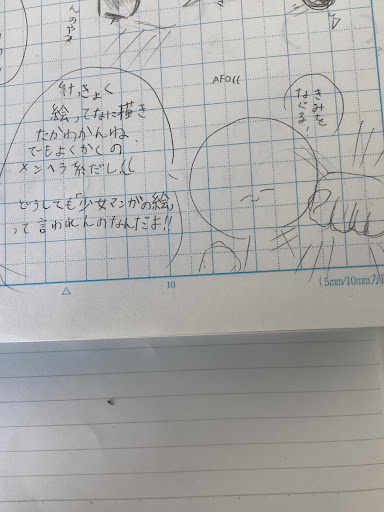 んのやる
けっきょく
絵ってなに描き
たかわかんね
でもよくかくの
メンヘラ系だし((
どうしても「少女マンガの絵」
って言われんのなんだよ!!
AFO((
きみを
なぐる!
10
(5mm/10mm方